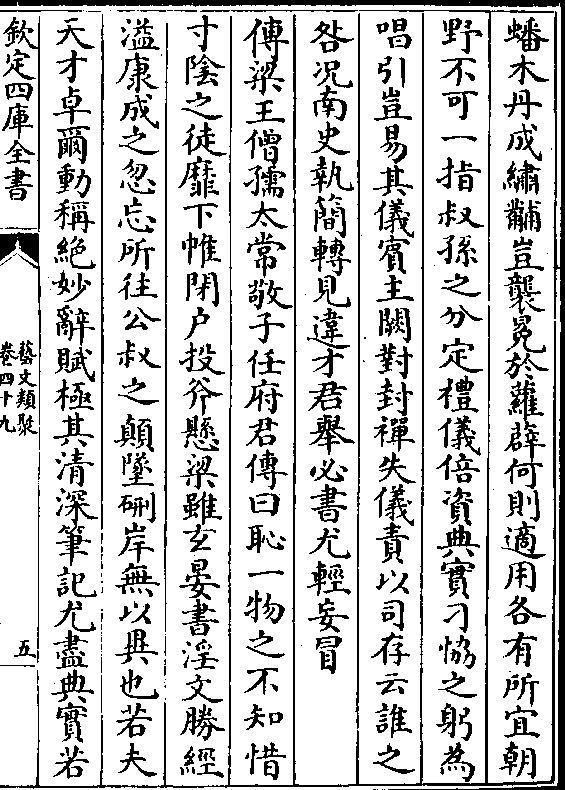 蟠木丹成繡黼豈襲冕於蘿薜何則適用各有所宜朝
野不可一指叔孫之分定禮儀倍資典實刁恊之躬為
唱引豈易其儀賓主闕對封禪失儀責以司存云誰之
咎况南史執簡轉見違才君舉必書尤輕妄冒
傳梁王僧孺太常敬子任府君傳曰恥一物之不知惜
寸陰之徒靡下帷閉户投斧懸梁雖玄晏書淫文勝經
溢康成之忽忘所往公叔之顛墜硎岸無以異也若夫
天才卓爾動稱絶妙辭賦極其清深筆記尤盡典實若
欽定四庫全書
藝文類聚
卷四十九
五